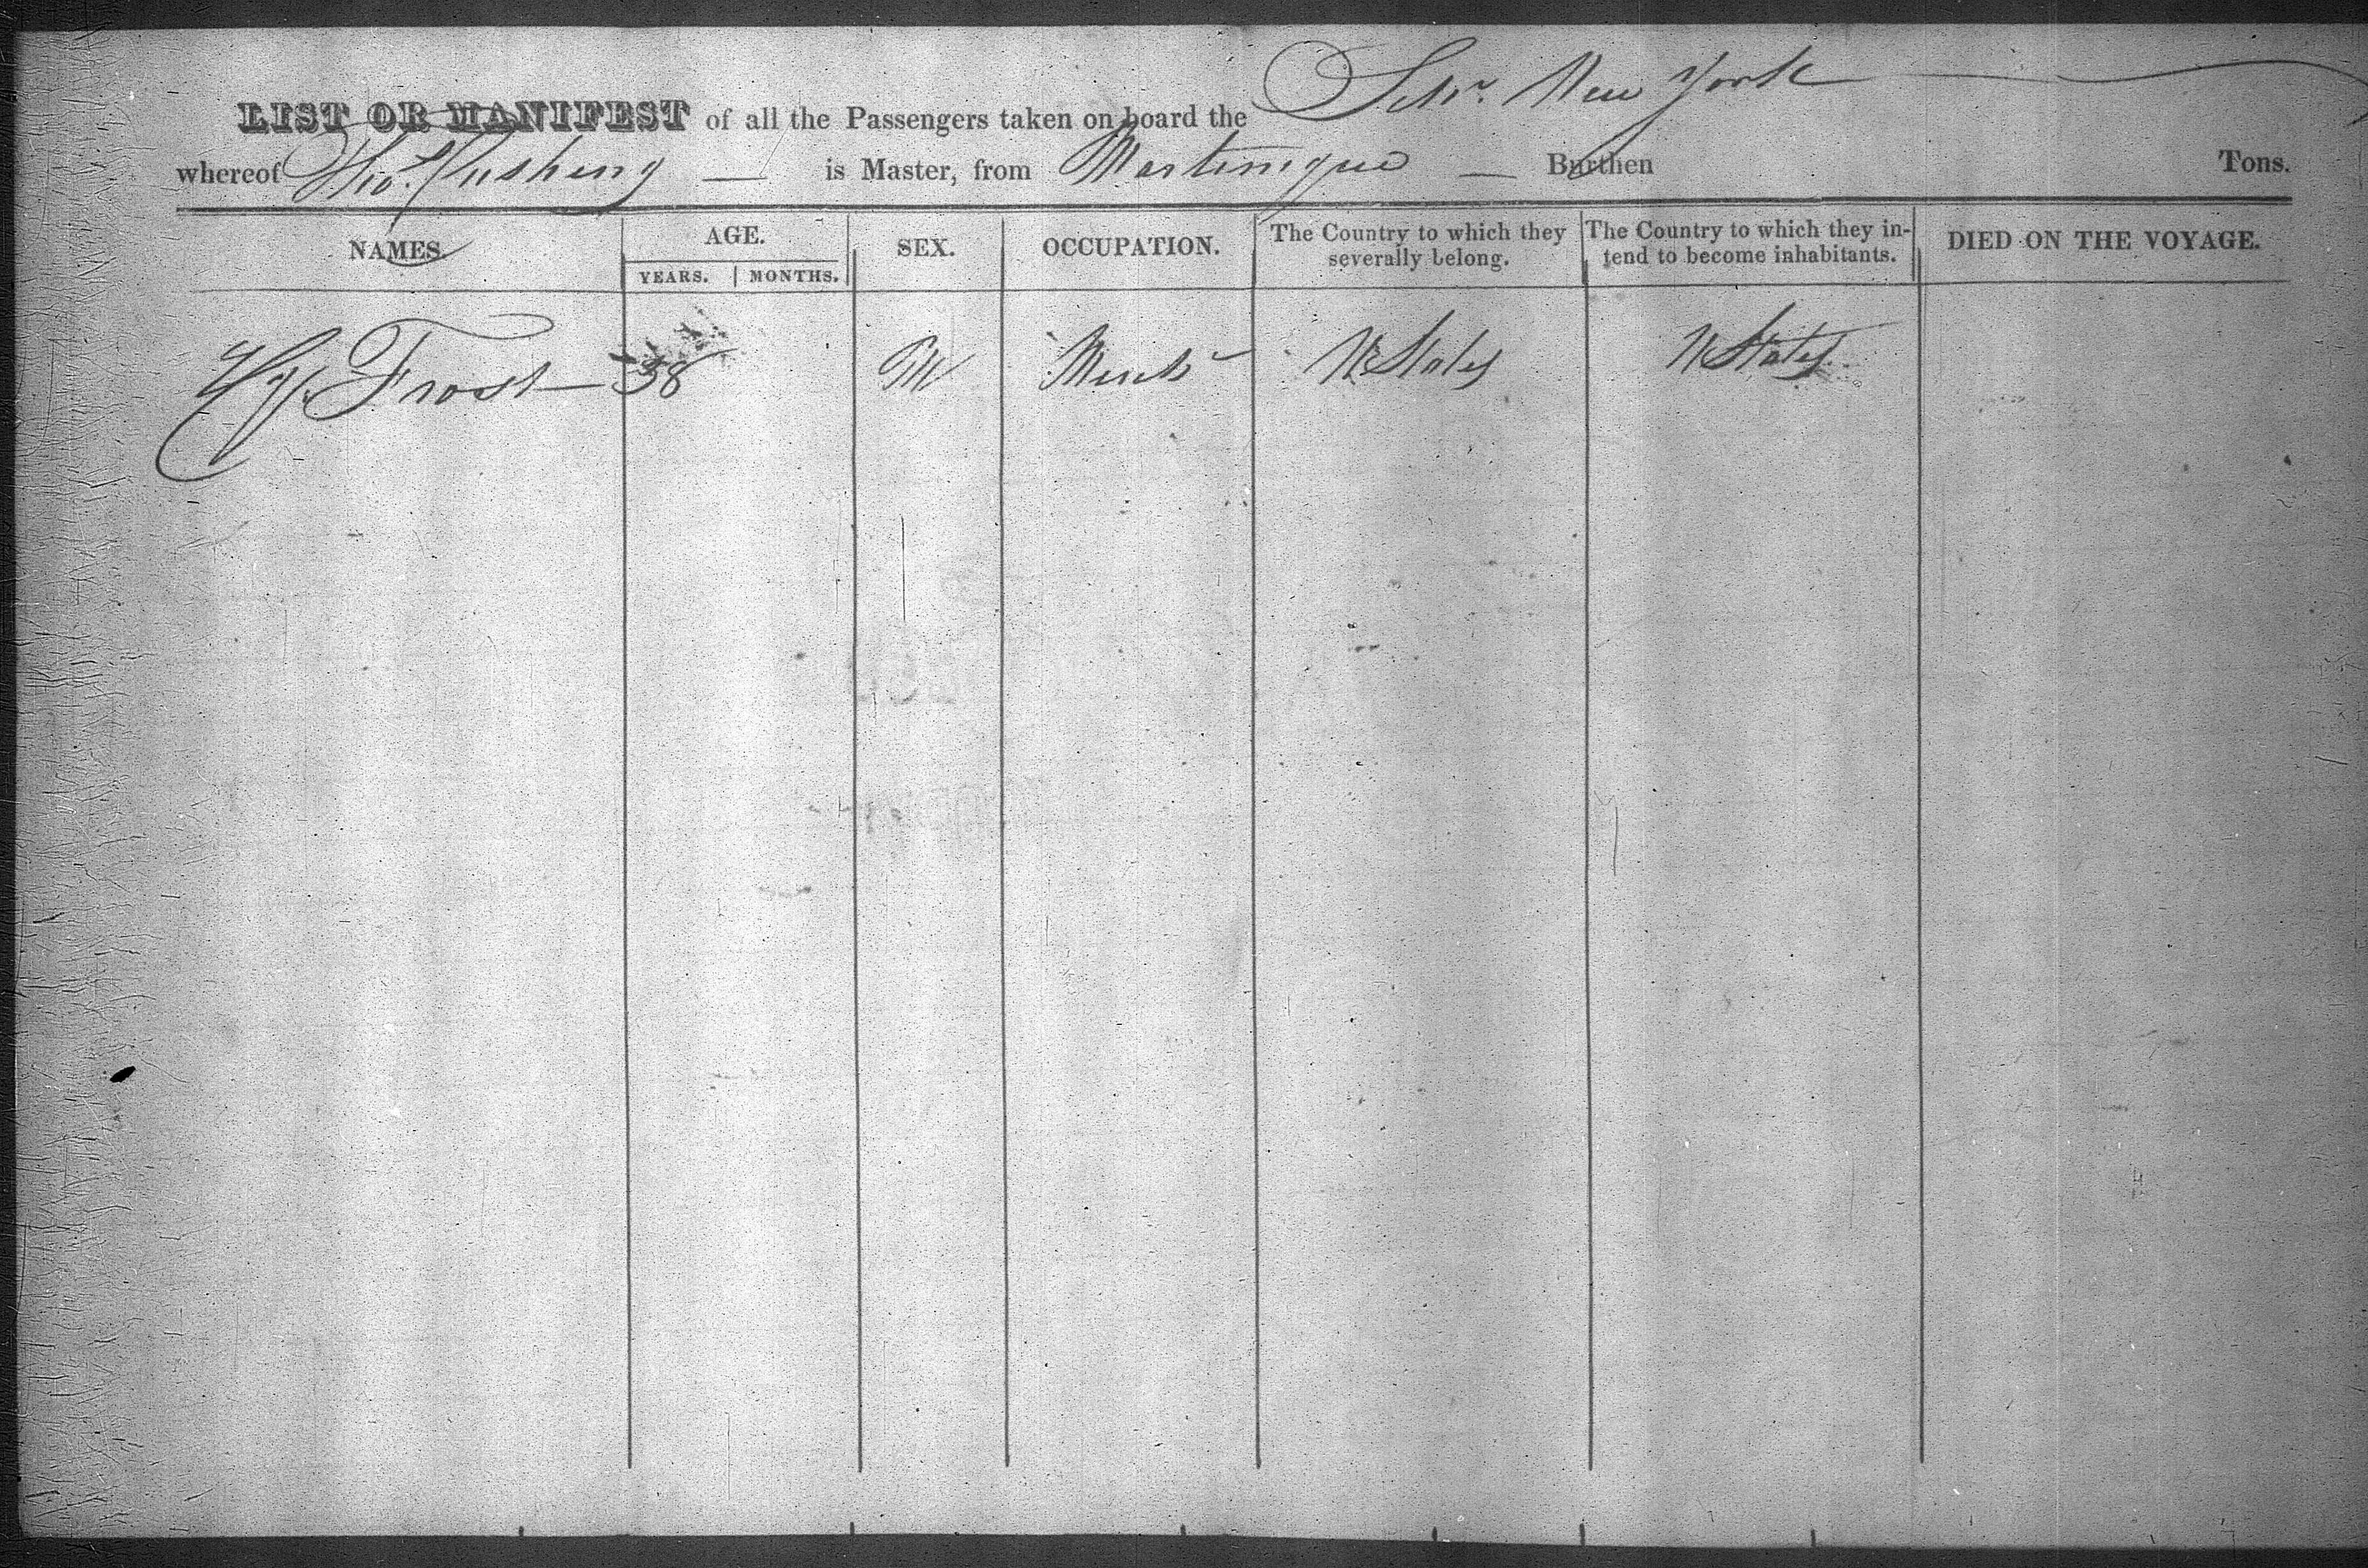 LIST OR MANIFEST of all the Passengers taken on board the Schr. New York
whereof Thos. Cushing — is Master, from Martinique — Burthen Tons.
NAMES. AGE. SEX. OCCUPATION. The Country to which they severally belong. The Country to which they intend to become inhabitants. DIED ON THE VOYAGE.
YEARS. MONTHS.
Hy. Frost 38 M Mercht U States U States